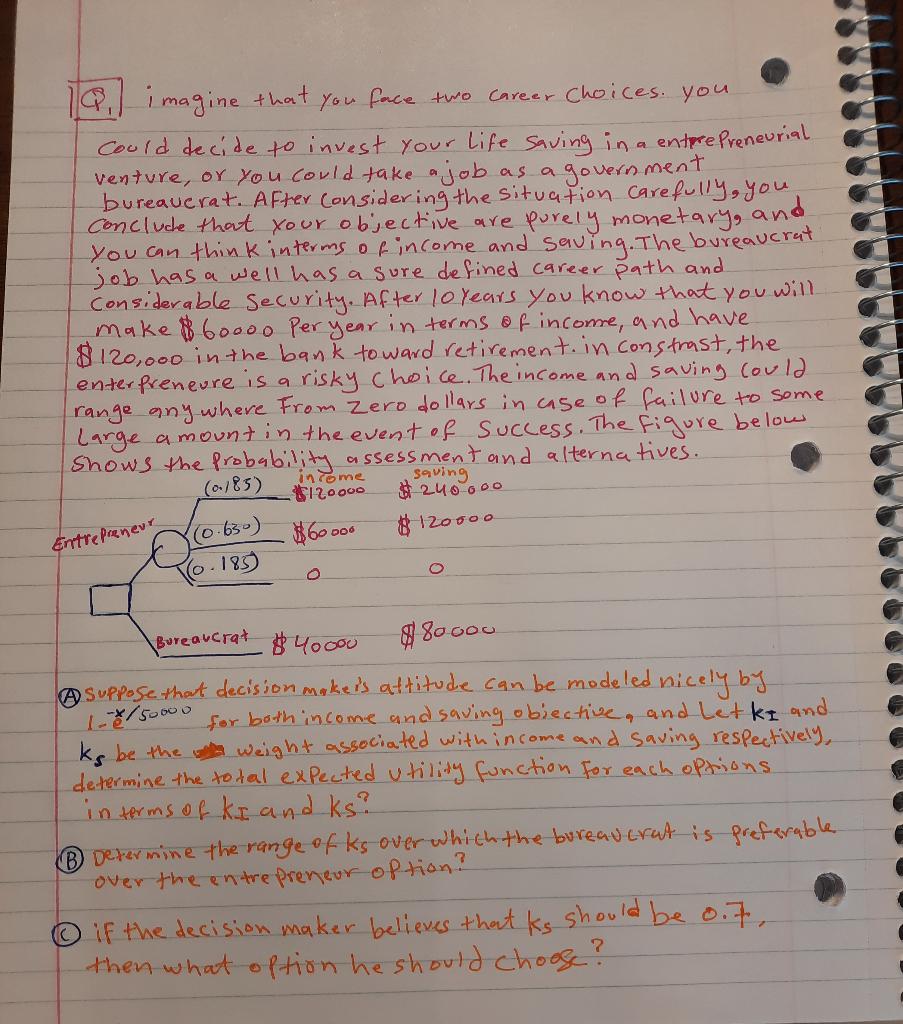 Q1 imagine that you face two career choices. you
Could decide to invest your life saving in a entrepreneurial
venture, or you could take a job as a government
bureaucrat. After considering the situation carefully, you
conclude that your objective are purely monetary, and
you can think interms of income and saving. The bureaucrat
job has a well has a sure defined career path and
Considerable Security. After 10 years you know that you will
make $60000 Per year in terms of income, and have
$120,000 in the bank toward retirement. in constrast, the
enterpreneure is a risky choice. The income and saving could
range any where From zero dollars in case of failure to some
Large amount in the event of Success. The figure below
Shows the Probability assessment and alternatives.
income saving
(0.185) $120000 $240000
Entrepreneur (0.630) $60000 $120000
(0.185) 0 0
Bureaucrat $40000 $80000
(A) suppose that decision maker's attitude can be modeled nicely by
1-e^-x/50000 for both income and saving objective, and Let kI and
ks be the weight associated with income and saving respectively,
determine the total expected utility function for each options
in terms of kI and ks?
(B) Determine the range of ks over which the bureaucrat is preferable
over the entrepreneur option?
(C) if the decision maker believes that ks should be 0.7,
then what option he should choose?